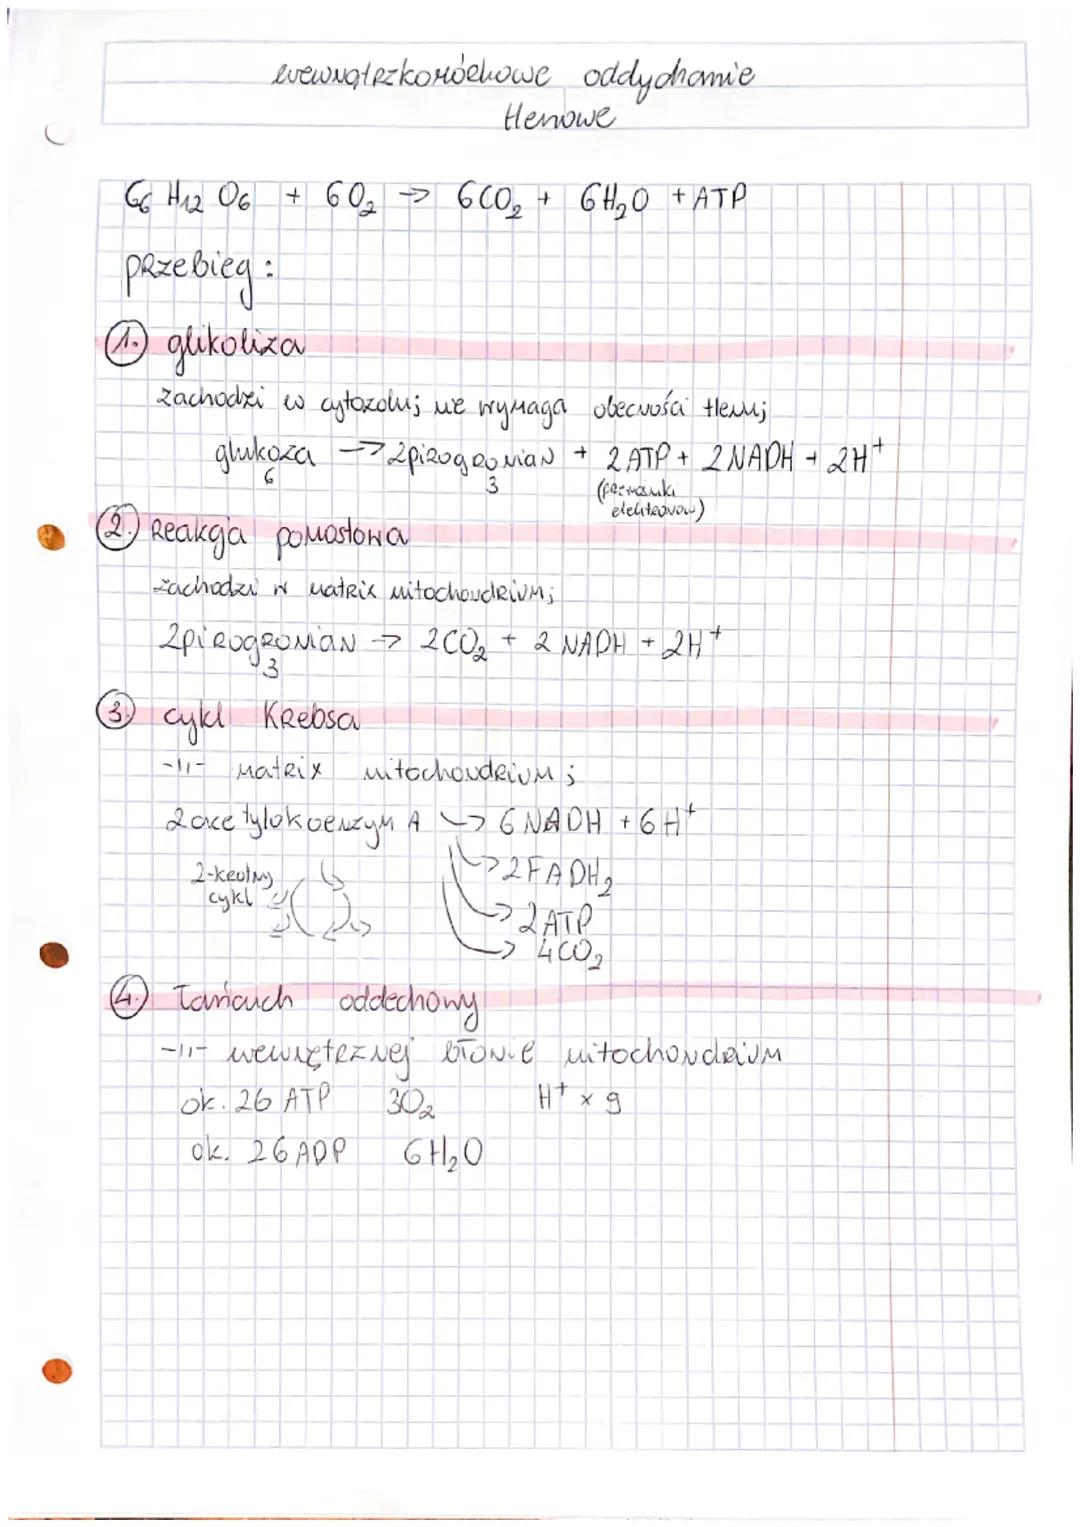 wewnątrzkomórkowe oddychanie
tlenowe
C6 H12 O6 + 6O2 → 6CO2 + 6H2O + ATP
przebieg:
1. glikoliza
zachodzi w cytozolu; nie wymaga obecności tlenu;
glukoza → 2pirogronian + 2 ATP + 2NADH + 2H+
6 3 (przenośniki
elektronów)
2. Reakcja pomostowa
zachodzi w matrix mitochondrium;
2pirogronian → 2CO2 + 2 NADH + 2H+
3
3. cykl Krebsa
-11- matrix mitochondrium;
2acetylokoenzym A → 6 NADH + 6H+
2-krotny → 2FADH2
cykl
→ 2ATP
→ 4CO2
4. Łańcuch oddechowy
-11- wewnętrznej błonie mitochondrium
ok. 26 ATP 3O2 H+ x 9
ok. 26 ADP 6H2O